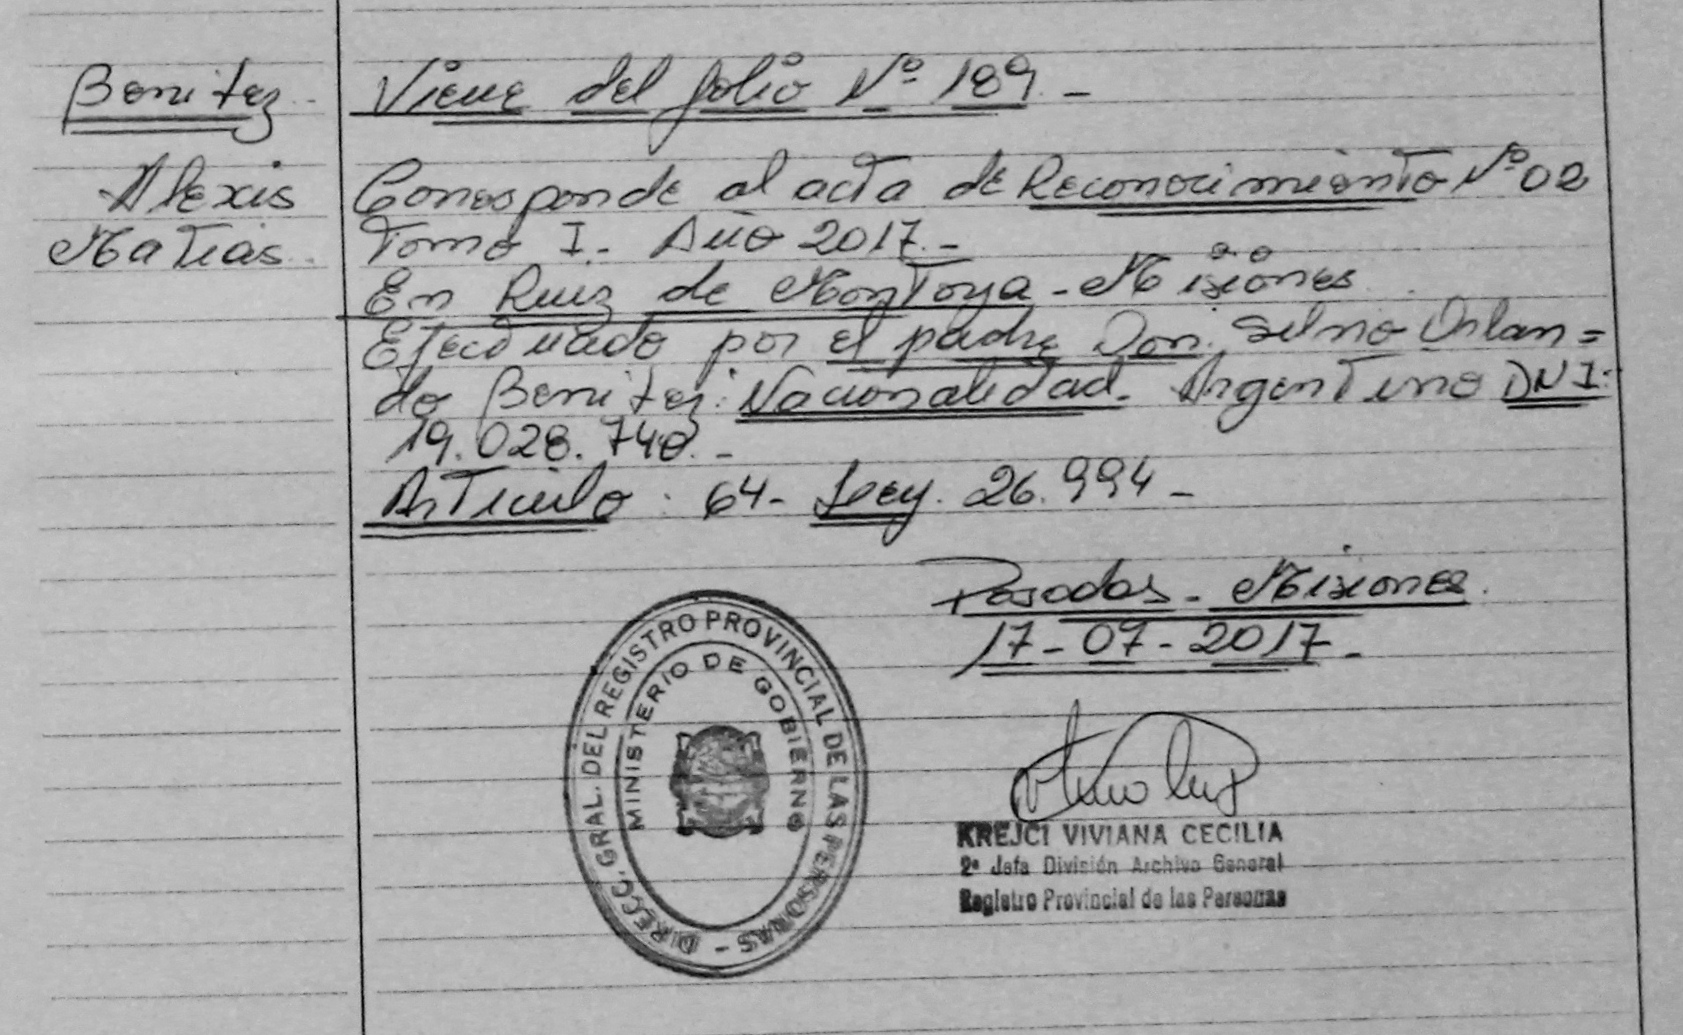 Benitez
Alexis
Matias.
Viene del folio Nº 189.-
Corresponde al acta de Reconocimiento Nº 02
Tomo I.- Año 2017.-
En Ruiz de Montoya - Misiones.
Efectuado por el padre Don. Silvio Orlan=
do Benitez: Nacionalidad. Argentino DNI:
19.028.740.-
Artículo: 64- Ley. 26.994-
Posadas - Misiones.
17-07-2017.-
DIRECC. GRAL. DEL REGISTRO PROVINCIAL DE LAS PERSONAS -
MINISTERIO DE GOBIERNO
KREJCI VIVIANA CECILIA
2º Jefa División Archivo General
Registro Provincial de las Personas